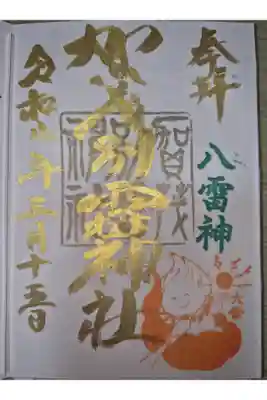 奉拝
八雷神
加茂別雷神社
賀茂
別雷
神社
令和八年三月十五日